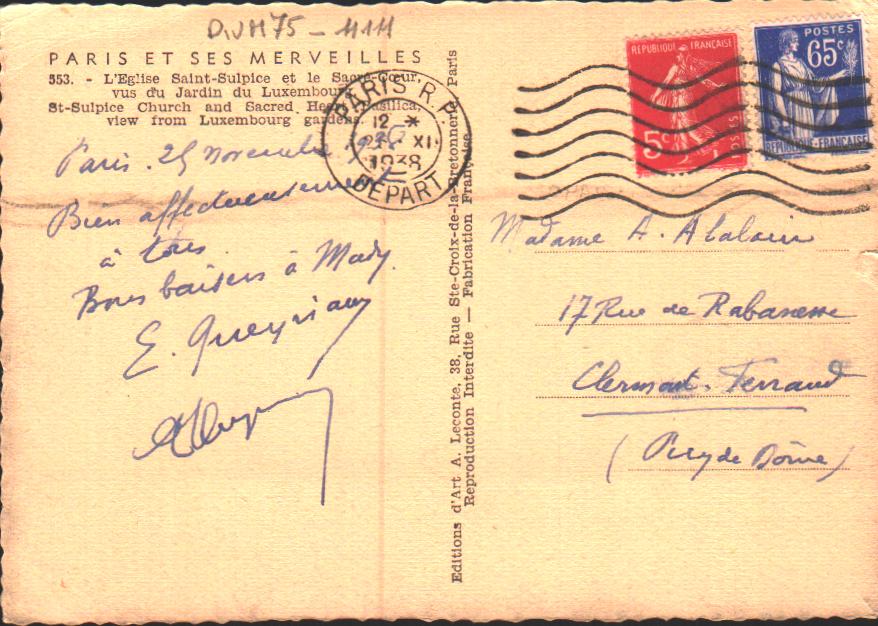 DIVM75 - 4111
PARIS ET SES MERVEILLES
553. - L'Eglise Saint-Sulpice et le Sacré-Cœur,
vus du Jardin du Luxembourg
St-Sulpice Church and Sacred Heart Basilica,
view from Luxembourg gardens.
Paris. 25 novembre 1938
Bien affectueusement
à tous
Bons baisers à Mady.
E. Queyriaux
PARIS R.P.
12
XI
1938
DEPART
Editions d'Art A. Leconte, 38, Rue Ste-Croix-de-la-Bretonnerie, Paris
Reproduction Interdite — Fabrication Française
REPUBLIQUE FRANÇAISE
5c
POSTES
POSTES
65c
REPUBLIQUE-FRANÇAISE
Madame A.
17 Rue de Rabanesse
Clermont-Ferrand
(Puy de Dôme)